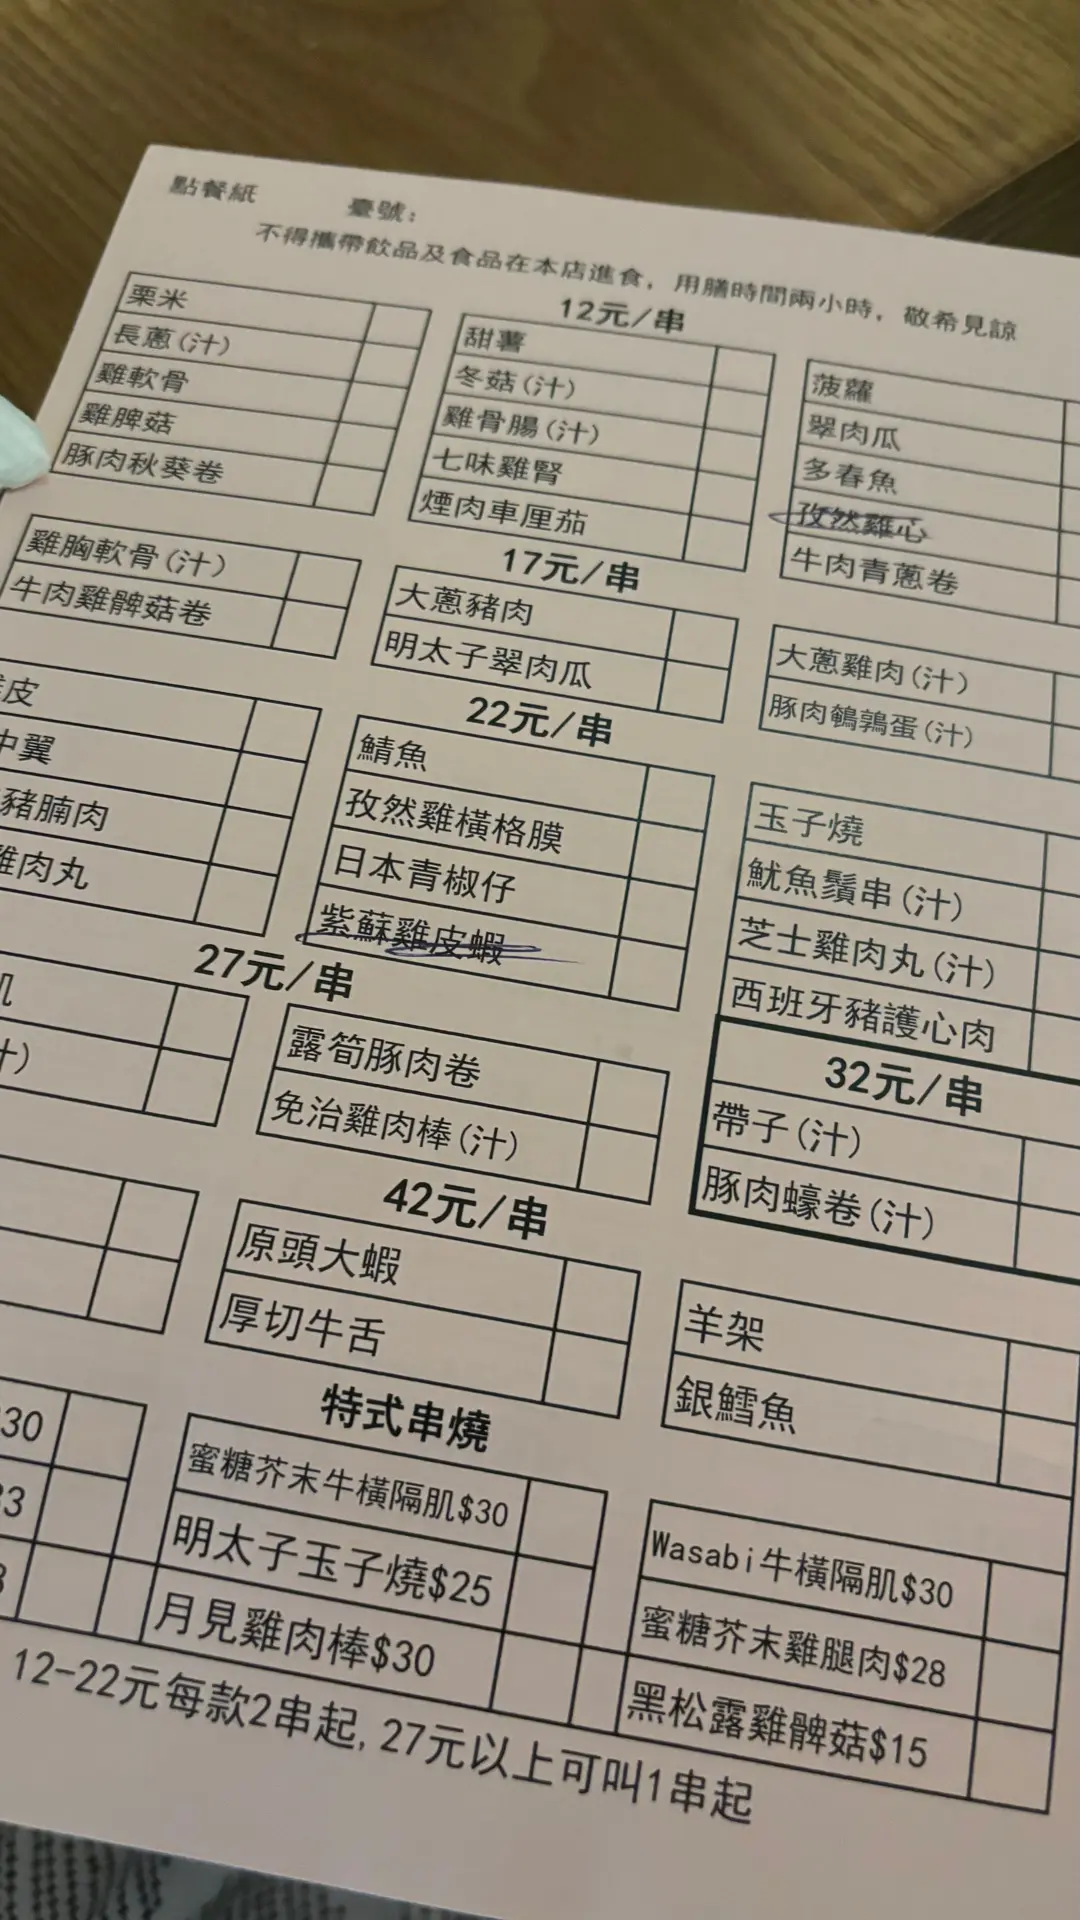 點餐紙 臺號:
不得攜帶飲品及食品在本店進食, 用膳時間兩小時, 敬希見諒
12元/串
粟米
長蔥(汁)
雞軟骨
雞脾菇
豚肉秋葵卷
甜薯
冬菇(汁)
雞骨腸(汁)
七味雞腎
煙肉車厘茄
菠蘿
翠肉瓜
多春魚
孜然雞心
牛肉青蔥卷
17元/串
雞胸軟骨(汁)
牛肉雞髀菇卷
大蔥豬肉
明太子翠肉瓜
大蔥雞肉(汁)
豚肉鵪鶉蛋(汁)
22元/串
皮
中翼
豬腩肉
雞肉丸
鯖魚
孜然雞橫格膜
日本青椒仔
紫蘇雞皮蝦
玉子燒
魷魚鬚串(汁)
芝士雞肉丸(汁)
西班牙豬護心肉
27元/串
肌
汁)
露筍豚肉卷
免治雞肉棒(汁)
32元/串
帶子(汁)
豚肉蠔卷(汁)
42元/串
原頭大蝦
厚切牛舌
羊架
銀鱈魚
特式串燒
30
3
蜜糖芥末牛橫隔肌$30
明太子玉子燒$25
月見雞肉棒$30
Wasabi牛橫隔肌$30
蜜糖芥末雞腿肉$28
黑松露雞髀菇$15
12-22元每款2串起, 27元以上可叫1串起